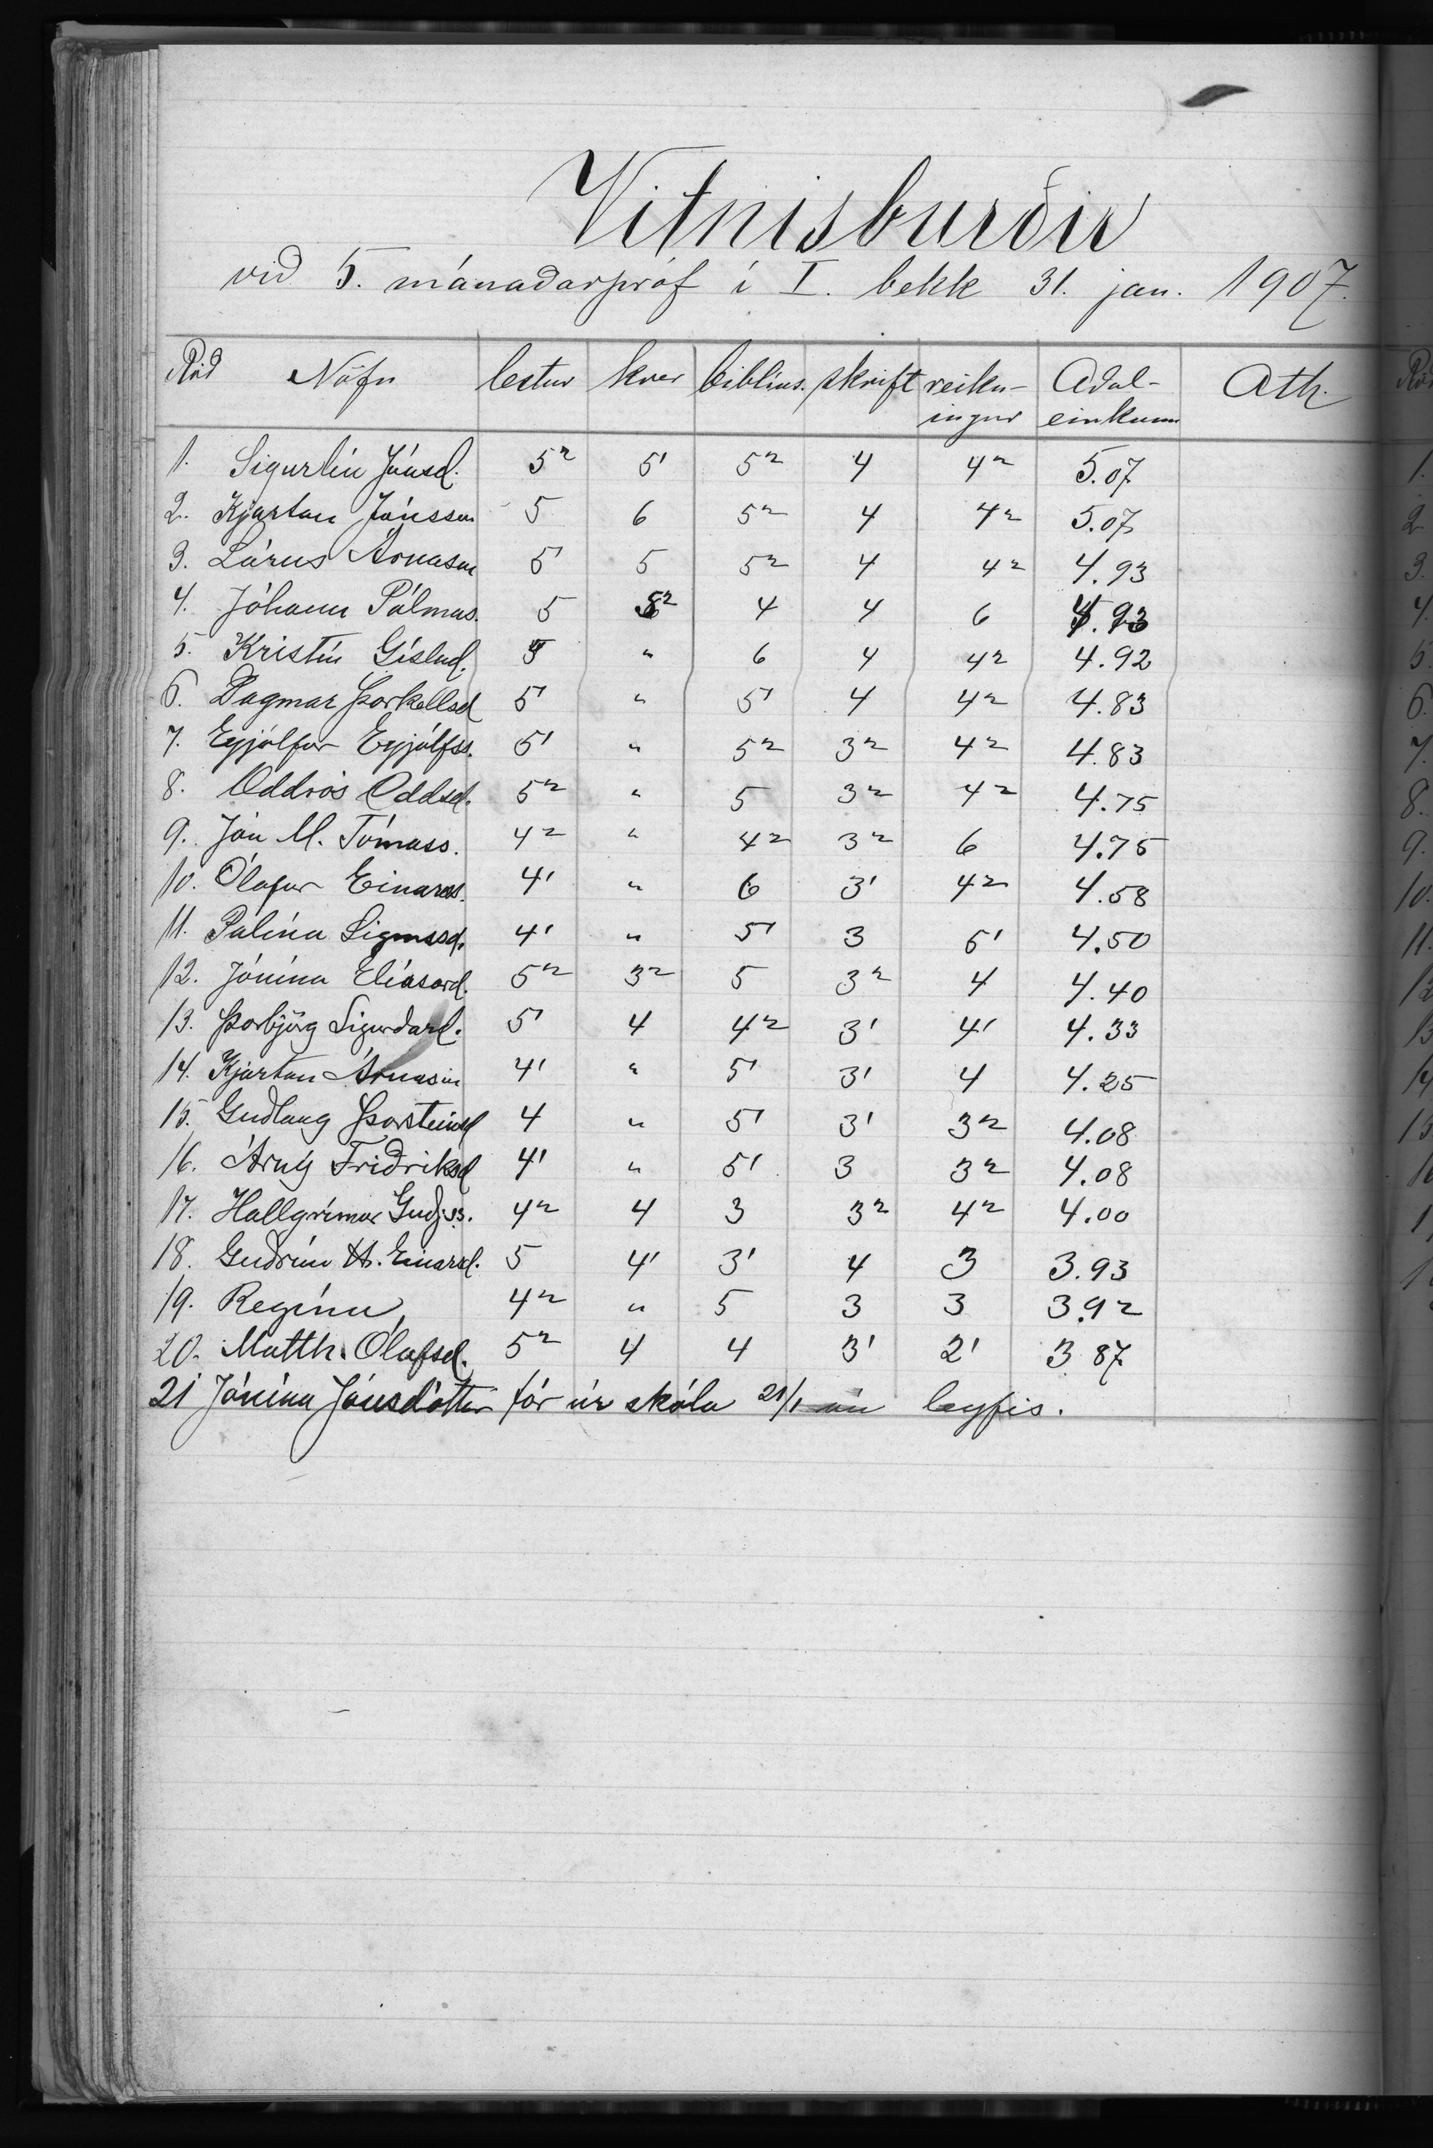 Vitnisburðir
við 5. mánaðarpróf í I. bekk 31. jan. 1907.
Röð Nöfn lestur kver biblíus. skrift reikn- Aðal- Ath.
ingur einkunn
1. Sigurlín Jónsd. 5² 5' 5² 4 4² 5.07
2. Kjartan Jónsson 5 6 5² 4 4² 5.07
3. Lárus Árnason 5' 5 5² 4 4² 4.93
4. Jóhann Pálmas. 5 4 4 6 4.93
5. Kristín Gíslad. 5 " 6 4 4² 4.92
6. Dagmar Þorkellsd 5' " 5' 4 4² 4.83
7. Eyjólfur Eyjólfss. 5' " 5² 3² 4² 4.83
8. Oddrós Oddsd. 5² " 5 3² 4² 4.75
9. Jón M. Tómass. 4² " 4² 3² 6 4.75
10. Ólafur Einarss. 4' " 6 3' 4² 4.58
11. Pálína Sigmssd. 4' " 5' 3 5' 4.50
12. Jónína Elíasard. 5² 3² 5 3² 4 4.40
13. Þorbjörg Sigurðard. 5' 4 4² 3' 4' 4.33
14. Kjartan Árnason 4' " 5' 3' 4 4.25
15. Guðlaug Þorsteinsd 4 " 5' 3' 3² 4.08
16. Árný Friðriksd 4' " 5' 3 3² 4.08
17. Hallgrímur Guðjss. 4² 4 3 3² 4² 4.00
18. Guðrún H. Einarsd. 5 4' 3' 4 3 3.93
19. Regína 4² " 5 3 3 3.92
20. Matth. Ólafsd. 5² 4 4 3' 2' 3 87
21 Jónína Jónsdóttir fór úr skóla 21/1 án leyfis.